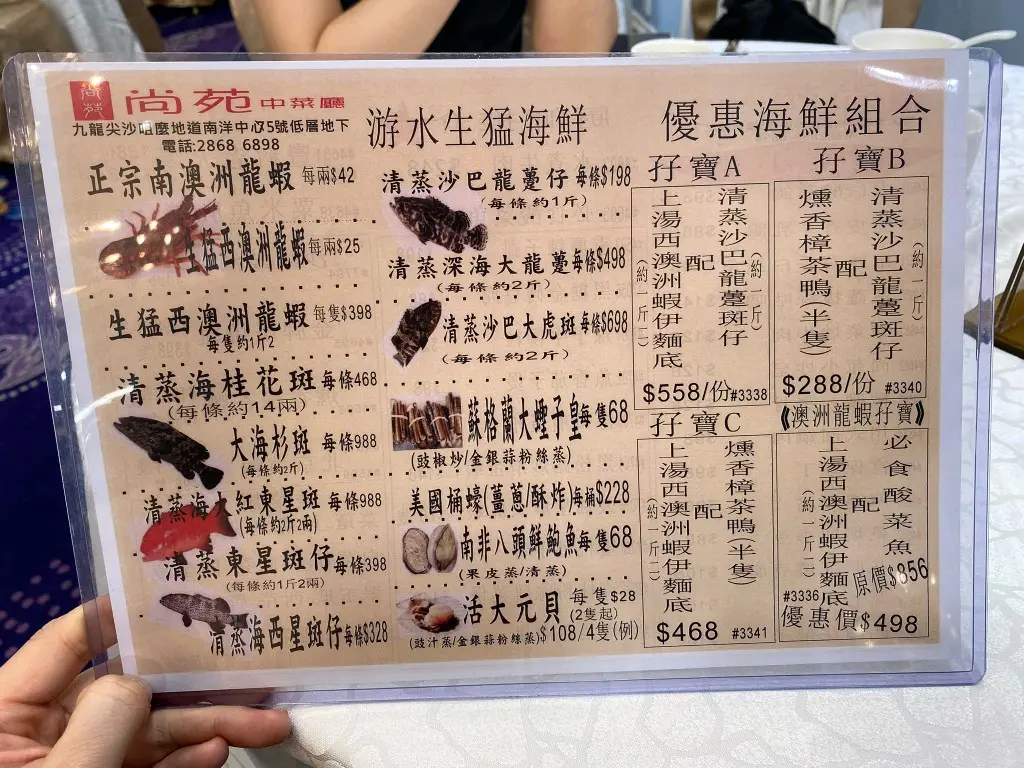 尚苑
尚苑 中菜廳
九龍尖沙咀麼地道南洋中心75號低層地下
電話:2868 6898
游水生猛海鮮
優惠海鮮組合
正宗南澳洲龍蝦 每兩$42
生猛西澳洲龍蝦 每兩$25
生猛西澳洲龍蝦 每隻$398
每隻約1斤2
清蒸海桂花斑 每條468
(每條約14兩)
大海杉斑 每條988
(每條約2斤)
清蒸海大紅東星斑 每條988
(每條約2斤2兩)
清蒸東星斑仔 每條398
(每條約1斤2兩)
清蒸海西星斑仔 每條$328
清蒸沙巴龍躉仔 每條$198
(每條約1斤)
清蒸深海大龍躉 每條$498
(每條約2斤)
清蒸沙巴大虎斑 每條$698
(每條約2斤)
蘇格蘭大蟶子皇 每隻68
(豉椒炒/金銀蒜粉絲蒸)
美國桶蠔(薑蔥/酥炸) 每桶$228
南非八頭鮮鮑魚 每隻68
(果皮蒸/清蒸)
活大元貝 每隻$28
(2隻起)
(豉汁蒸/金銀蒜粉絲蒸) $108/4隻(例)
孖寶A
清蒸沙巴龍躉斑仔
(約一斤)
配
上湯西澳洲蝦伊麵底
(約一斤二)
$558/份 #3338
孖寶B
清蒸沙巴龍躉斑仔
(約一斤)
配
燻香樟茶鴨(半隻)
$288/份 #3340
孖寶C
燻香樟茶鴨(半隻)
配
上湯西澳洲蝦伊麵底
(約一斤二)
$468 #3341
《澳洲龍蝦孖寶》
必食酸菜魚
配
上湯西澳洲蝦伊麵底
(約一斤二)
原價$856
#3336
優惠價$498